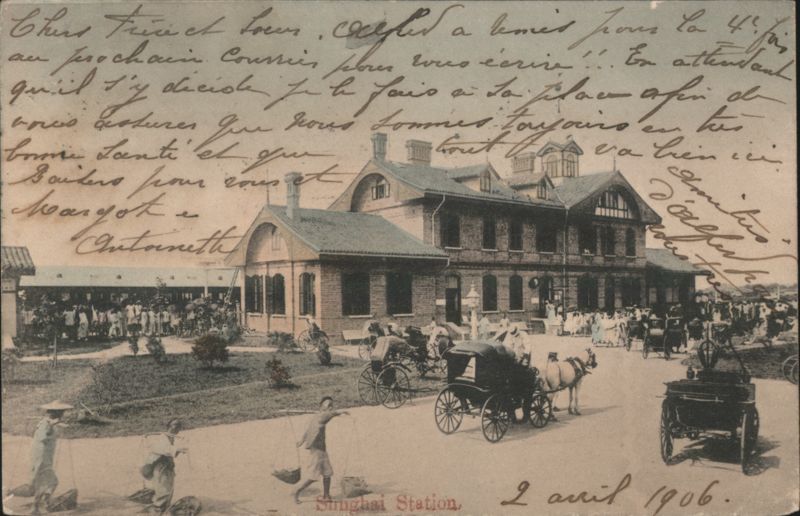 Chers Frère et Soeur. Alfred a remis pour la 4e fois
au prochain courrier pour vous écrire!! En attendant
qu'il s'y décide je le fais à sa place afin de
vous assurer que nous sommes toujours en très
bonne santé et que tout va bien ici
Baisers pour vous et
Margot
Antoinette
Amitiés
d'Alfred
Shnghai Station.
2 avril 1906.